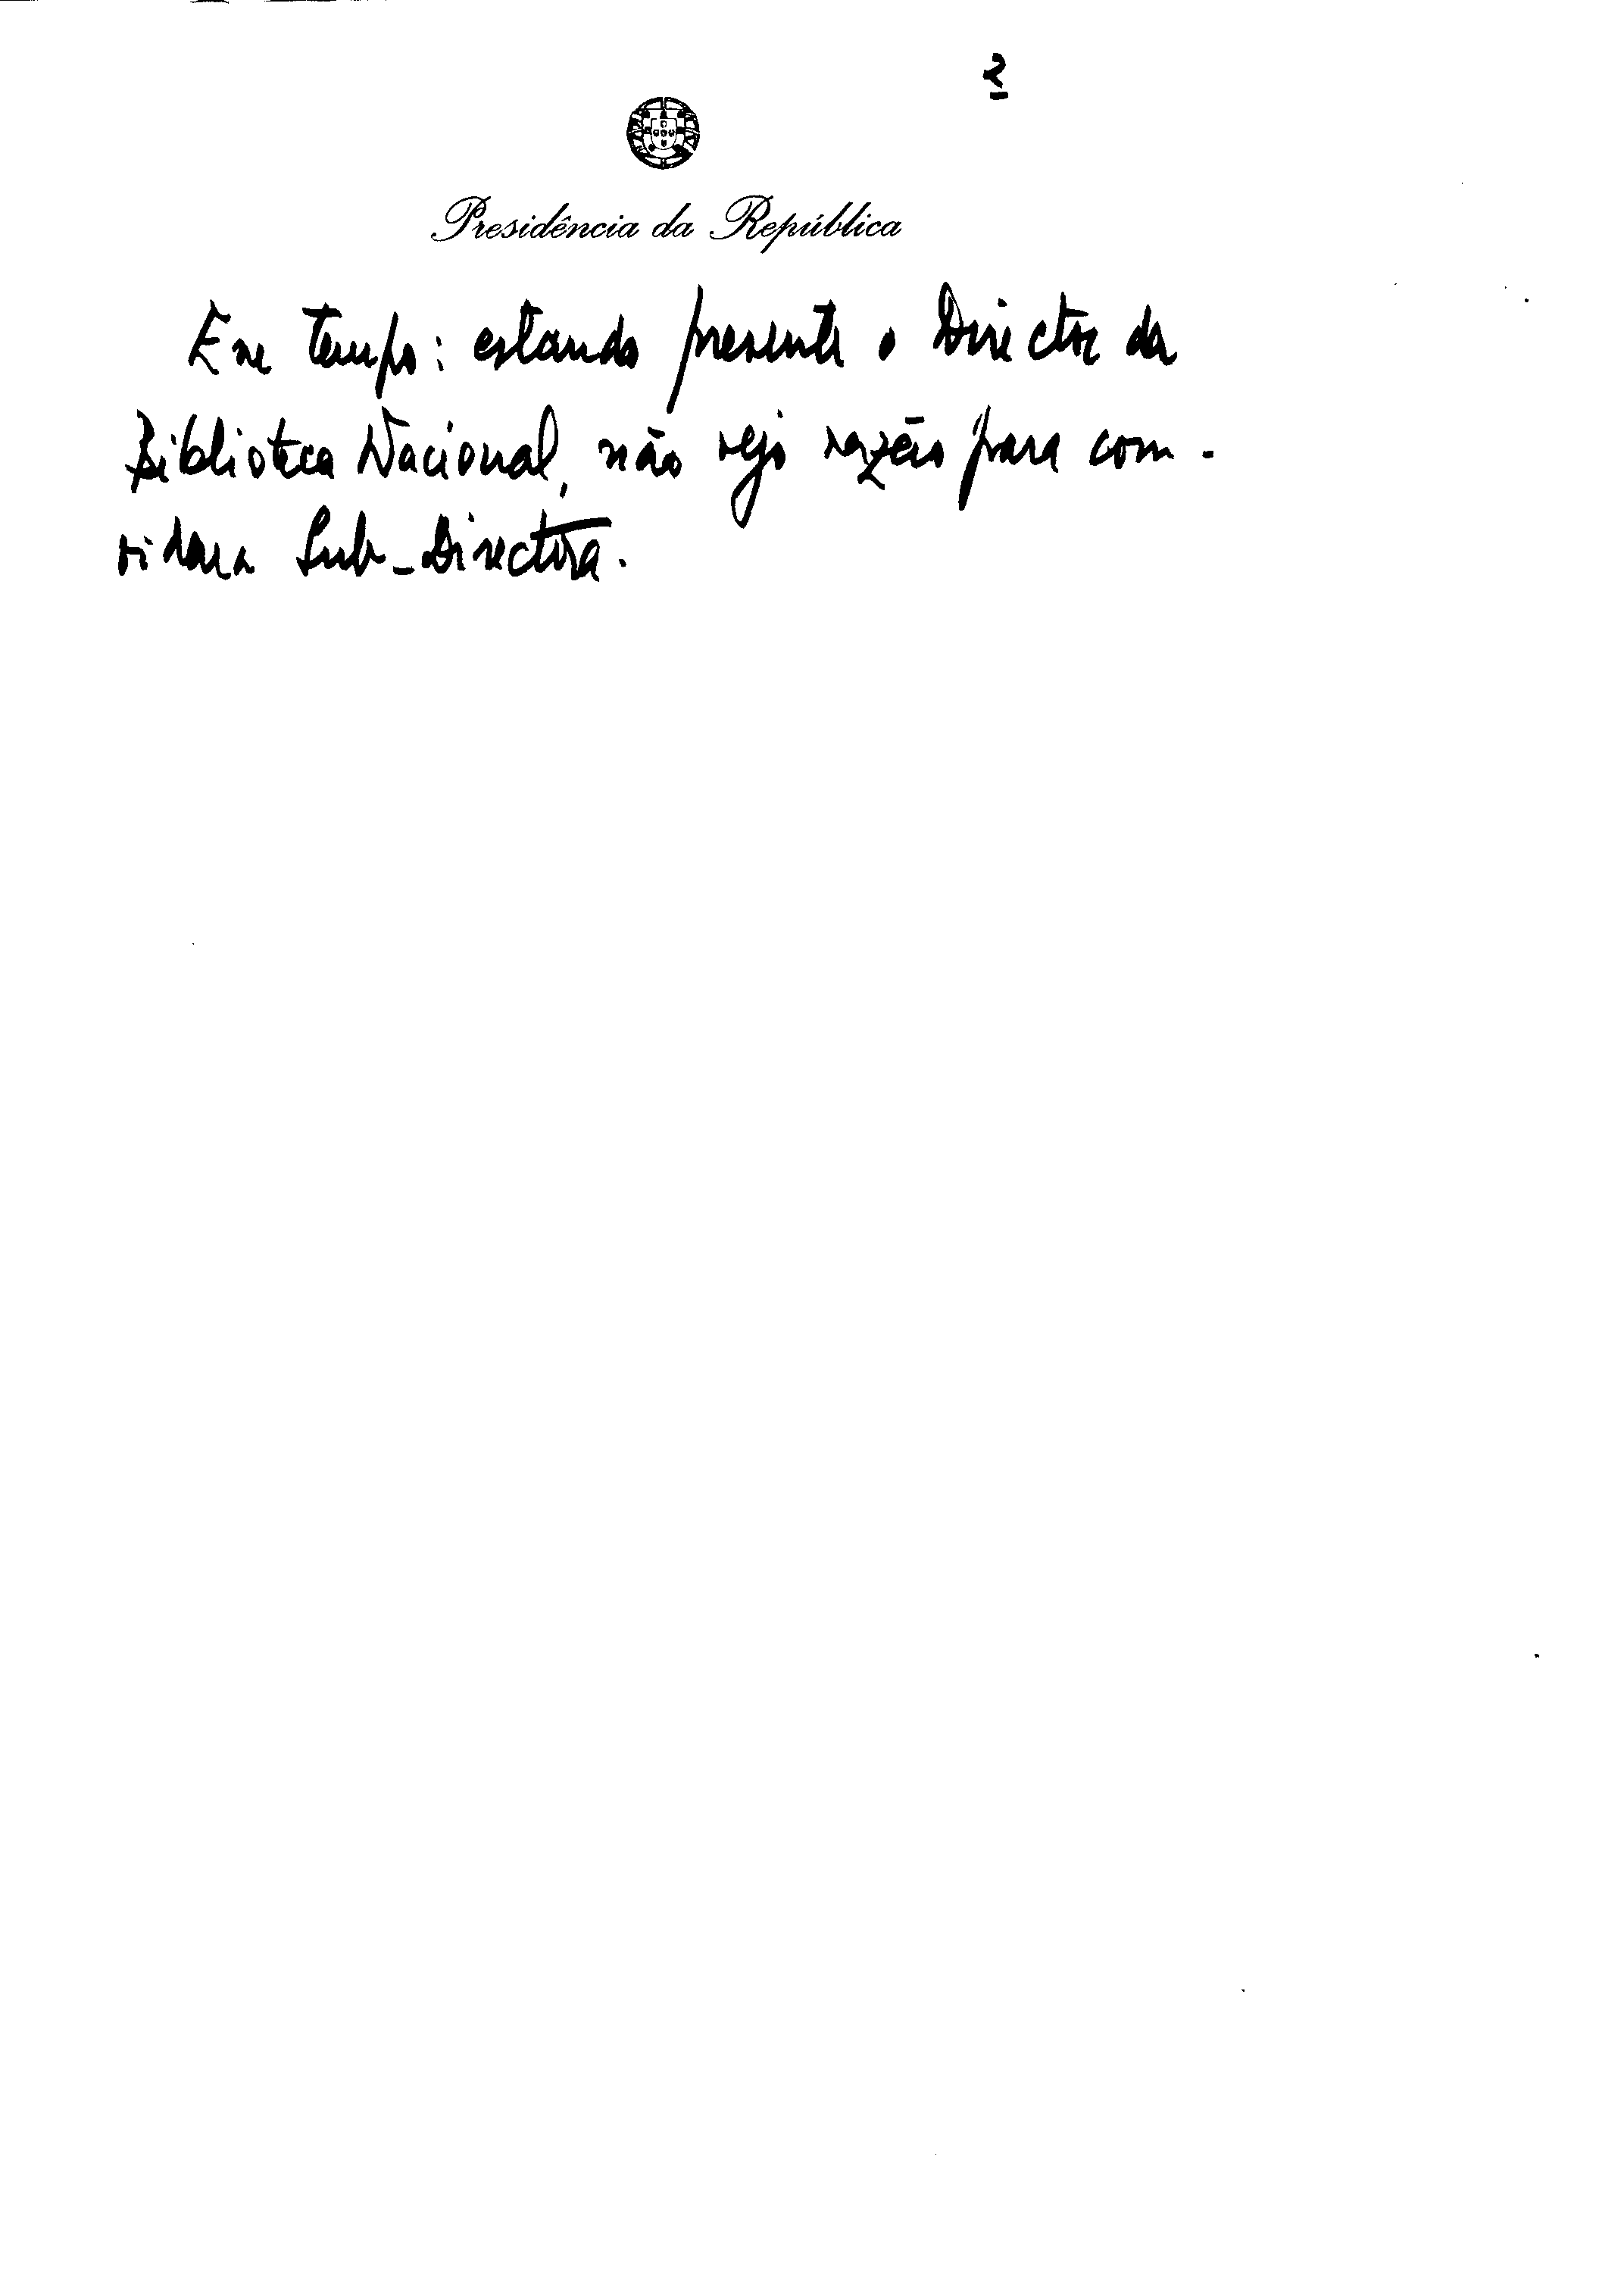 2
Presidência da República
Em tempo: estando presente o Director da
Biblioteca Nacional, não vejo razão para con-
vidar a Sub-Directora.